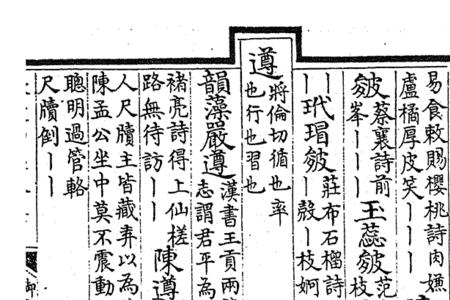 易食敕賜櫻桃詩肉嫌
盧橘厚皮笑丨丨丨
皴蔡襄詩前
峯丨丨丨
玉蕊皴范
枝
丨玳瑁皴莊布石榴詩
丨殼丨枝婀
遵將倫切循也率
也行也習也
韻藻嚴遵漢書王貢兩
志謂君平為
褚亮詩得上仙槎
路無待訪丨丨
陳遵
人尺牘主皆藏弆以為
陳孟公坐中莫不震動
聰明過管輅
尺牘倒丨丨
御